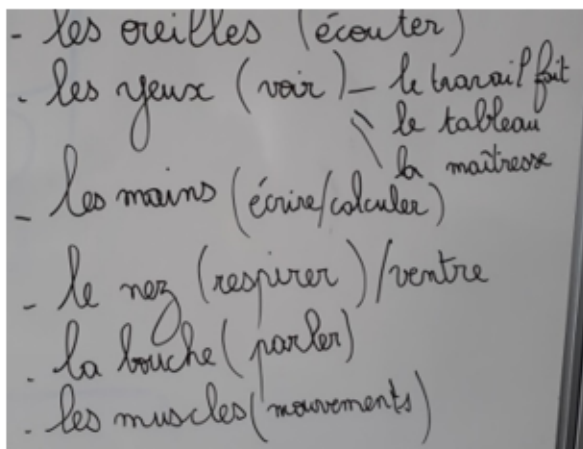 - les oreilles (écouter)
- les yeux (voir) - le travail fait
le tableau
la maîtresse
- les mains (écrire/calculer)
- le nez (respirer)/ventre
- la bouche (parler)
- les muscles (mouvements)